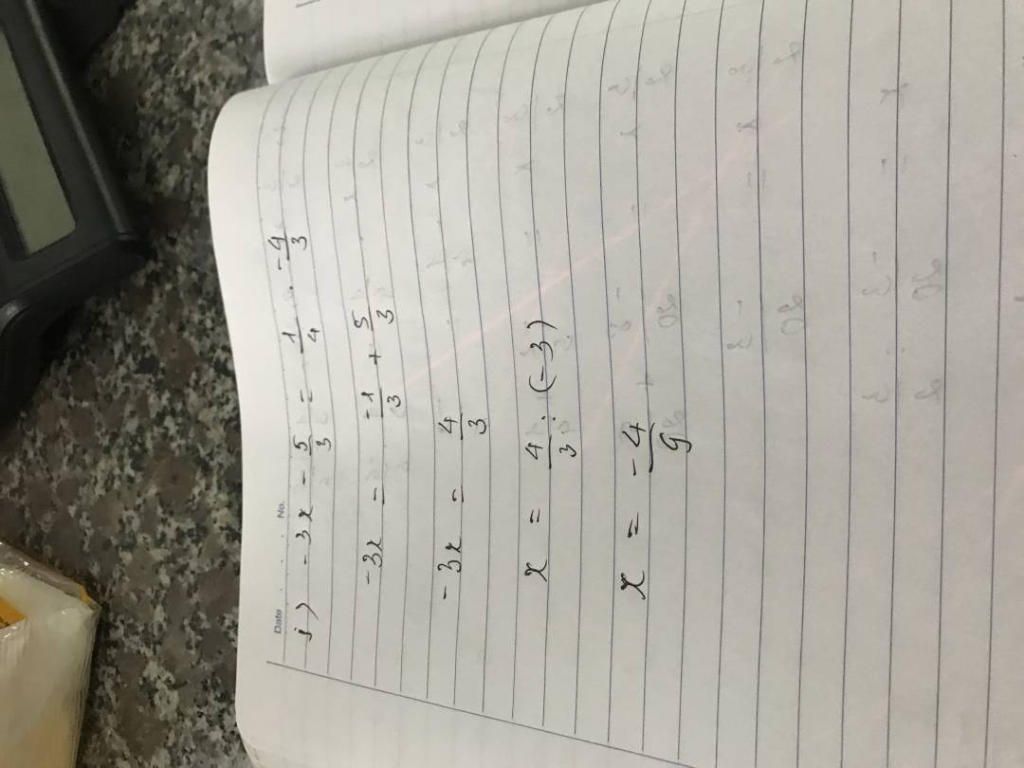 Date No.
j) -3x - 5/3 = 1/4 . -4/3
-3x = -1/3 + 5/3
-3x = 4/3
x = 4/3 : (-3)
x = -4/9